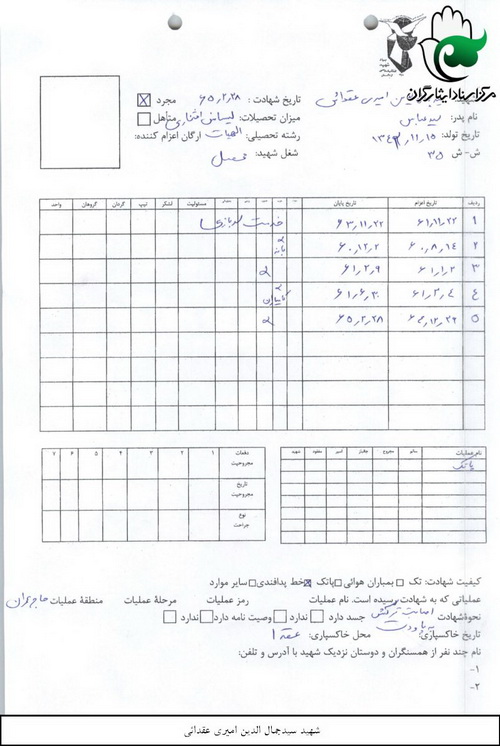 مرکز اسناد ایثارگران
امیری عقدائی تاریخ شهادت: ۶۵٫۲٫۲۸ مجرد
نام پدر: سیدعباس میزان تحصیلات: لیسانس افتخاری متأهل
تاریخ تولد: ۱۵٫۱۱٫ رشته تحصیلی: الهیات ارگان اعزام کننده:
ش-ش ۳۵ شغل شهید: محصل
ردیف تاریخ اعزام تاریخ پایان مسئولیت لشکر تیپ گردان گروهان واحد
۱ ۶۱٫۱۱٫۲۲ ۶۳٫۱۱٫۲۲ خدمت سربازی
۲ ۶۰٫۸٫۱۴ ۶۰٫۱۲٫۲
۳ ۶۱٫۱٫۲ ۶۱٫۲٫۹
۴ ۶۱٫۳٫۴ ۶۱٫۶٫۳۰
۵ ۶۴٫۱۲٫۲۶ ۶۵٫۲٫۲۸
نام عملیات سالم مجروح شیمیائی اسیر مفقود شهید
پاتک
دفعات مجروحیت ۱ ۲ ۳ ۴ ۵ ۶ ۷
تاریخ مجروحیت
نوع جراحت
کیفیت شهادت: تک بمباران هوائی پاتک خط پدافندی سایر موارد
عملیاتی که به شهادت رسیده است. نام عملیات رمز عملیات مرحلهٔ عملیات منطقهٔ عملیات حاج عمران
نحوهٔ شهادت اصابت ترکش جسد دارد ندارد وصیت نامه دارد ندارد
تاریخ خاکسپاری: محل خاکسپاری: عقدا
نام چند نفر از همسنگران و دوستان نزدیک شهید با آدرس و تلفن:
۱-
۲-
شهید سیدجمال الدین امیری عقدائی